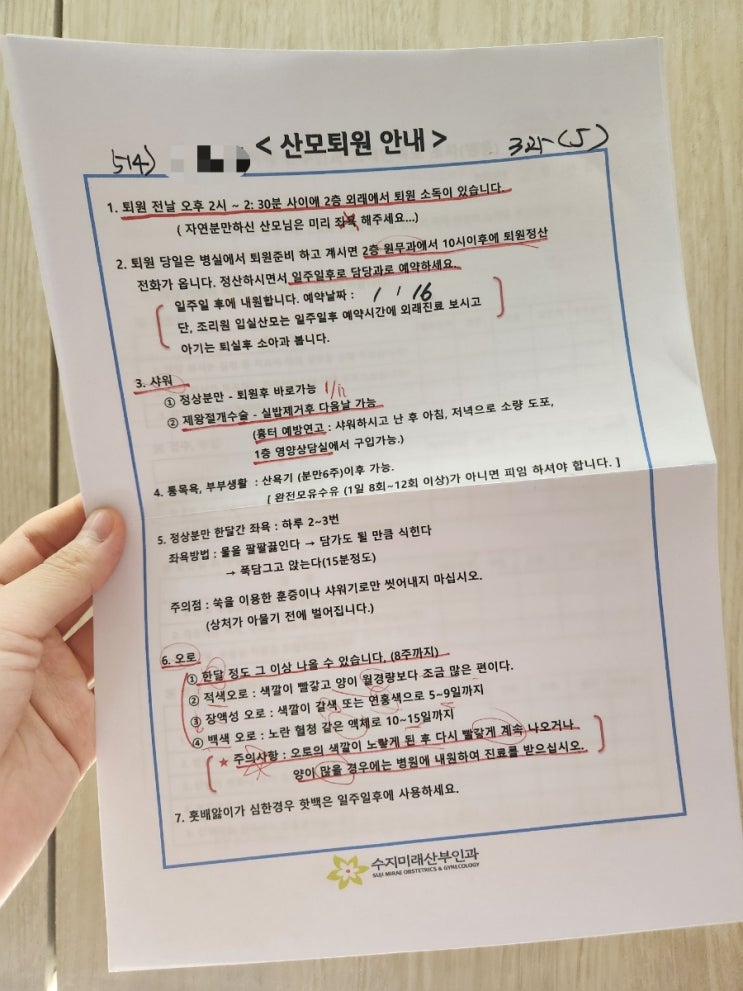 514) < 산모퇴원 안내 > 325-(5)
1. 퇴원 전날 오후 2시 ~ 2: 30분 사이에 2층 외래에서 퇴원 소독이 있습니다.
( 자연분만하신 산모님은 미리 좌욕 해주세요...)
2. 퇴원 당일은 병실에서 퇴원준비 하고 계시면 2층 원무과에서 10시이후에 퇴원정산
전화가 옵니다. 정산하시면서 일주일후로 담당과로 예약하세요.
일주일 후에 내원합니다. 예약날짜 : 1 / 16
단, 조리원 입실산모는 일주일후 예약시간에 외래진료 보시고
아기는 퇴실후 소아과 봅니다.
3. 샤워
① 정상분만 - 퇴원후 바로가능
② 제왕절개수술 - 실밥제거후 다음날 가능
(흉터 예방연고 : 샤워하시고 난 후 아침, 저녁으로 소량 도포,
1층 영양상담실에서 구입가능.)
4. 통목욕, 부부생활 : 산욕기 (분만6주)이후 가능.
[ 완전모유수유 (1일 8회~12회 이상)가 아니면 피임 하셔야 합니다. ]
5. 정상분만 한달간 좌욕 : 하루 2~3번
좌욕방법 : 물을 팔팔끓인다 → 담가도 될 만큼 식힌다
→ 푹담그고 앉는다(15분정도)
주의점 : 쑥을 이용한 훈증이나 샤워기로만 씻어내지 마십시오.
(상처가 아물기 전에 벌어집니다.)
6. 오로
① 한달 정도 그 이상 나올 수 있습니다. (8주까지)
② 적색오로 : 색깔이 빨갛고 양이 월경량보다 조금 많은 편이다.
③ 장액성 오로 : 색깔이 갈색 또는 연홍색으로 5~9일까지
④ 백색 오로 : 노란 혈청 같은 액체로 10~15일까지
★ 주의사항 : 오로의 색깔이 노랗게 된 후 다시 빨갛게 계속 나오거나
양이 많을 경우에는 병원에 내원하여 진료를 받으십시오.
7. 훗배앓이가 심한경우 핫백은 일주일후에 사용하세요.
수지미래산부인과
SUJI MIRAE OBSTETRICS & GYNECOLOGY